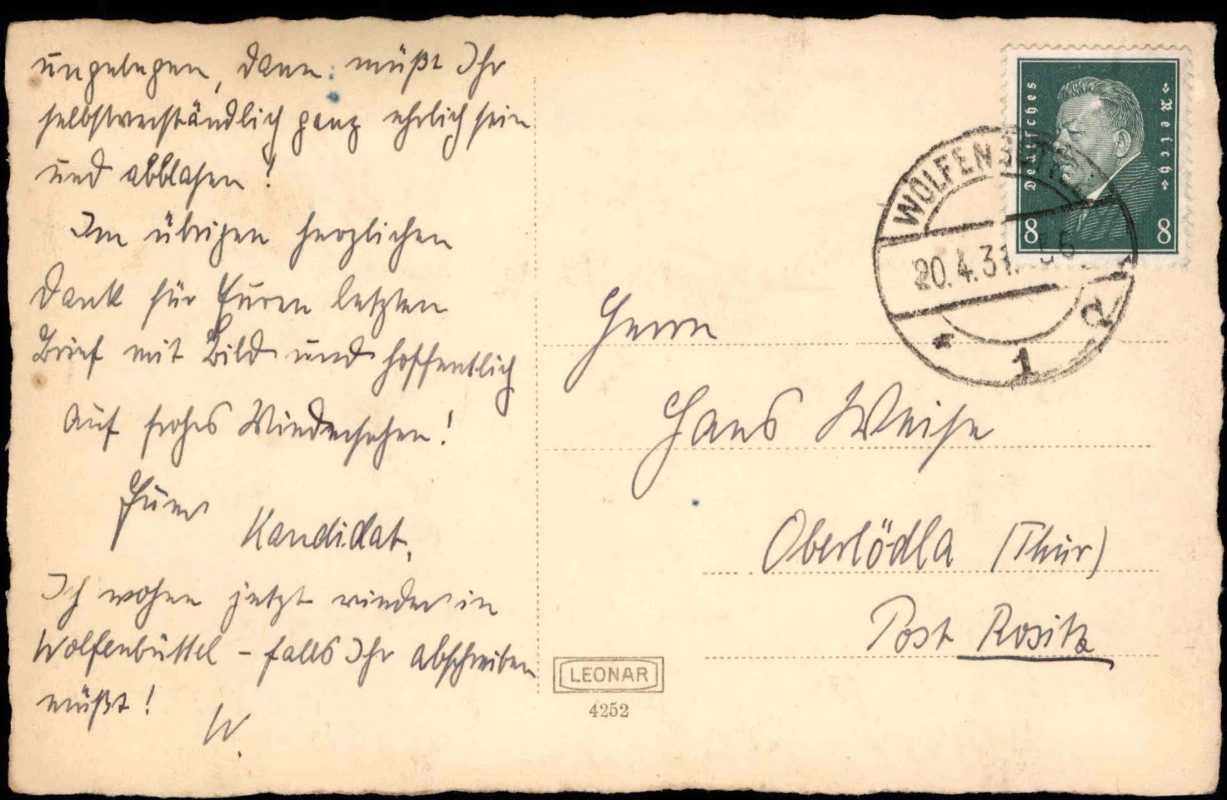 ungelegen, dann müßt Ihr
selbstverständlich ganz ehrlich sein
und abblasen!
Im übrigen herzlichen
Dank für Euren letzten
Brief mit Bild und hoffentlich
auf frohes Wiedersehen!
Euer
Kandidat.
Ich wohne jetzt wieder in
Wolfenbüttel – falls Ihr abschreiben
müßt!
W.
Deutsches Reich
8 8
WOLFENBÜTTEL
20.4.31.
* 1
Herrn
Hans Weise
Oberlödla (Thür)
Post Rositz
LEONAR
4252